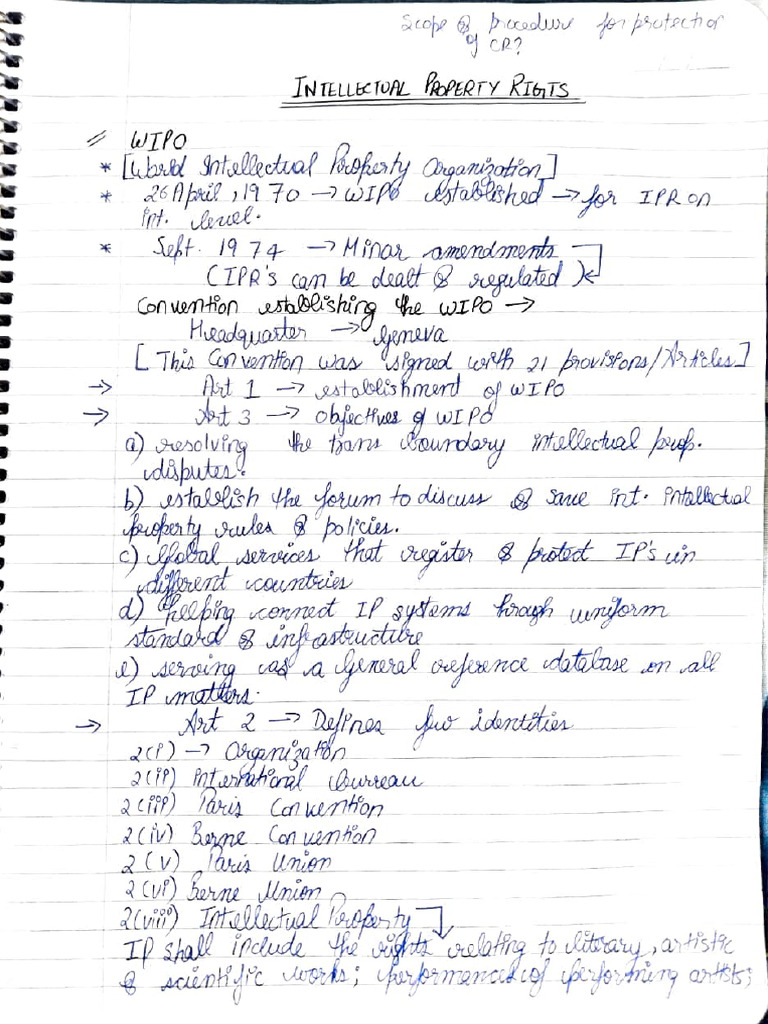 Scope & procedure for protection
of CR?
INTELLECTUAL PROPERTY RIGTS
// WIPO
* [World Intellectual Property Organization]
* 26 April, 1970 → WIPO established → for IPR on
int. level.
* Sept. 1974 → Minar amendments
(IPR's can be dealt & regulated)
Convention establishing the WIPO →
Headquarter → Geneva
[This Convention was signed with 21 provisions/Articles]
→ Art 1 → establishment of WIPO
→ Art 3 → objectives of WIPO
a) resolving the trans boundary intellectual prop.
disputes.
b) establish the forum to discuss & save int. intellectual
property rules & policies.
c) Global services that register & protect IP's in
different countries
d) helping connect IP systems through uniform
standard & infrastructure
e) serving as a General reference database on all
IP matters.
→ Art 2 → Defines few identities
2(i) → Organization
2(ii) International Burreau
2(iii) Paris Convention
2(iv) Berne Convention
2(v) Paris Union
2(vi) Berne Union
2(viii) Intellectual Property
IP shall include the rights relating to literary, artistic
& scientific works; performances of performing artists;